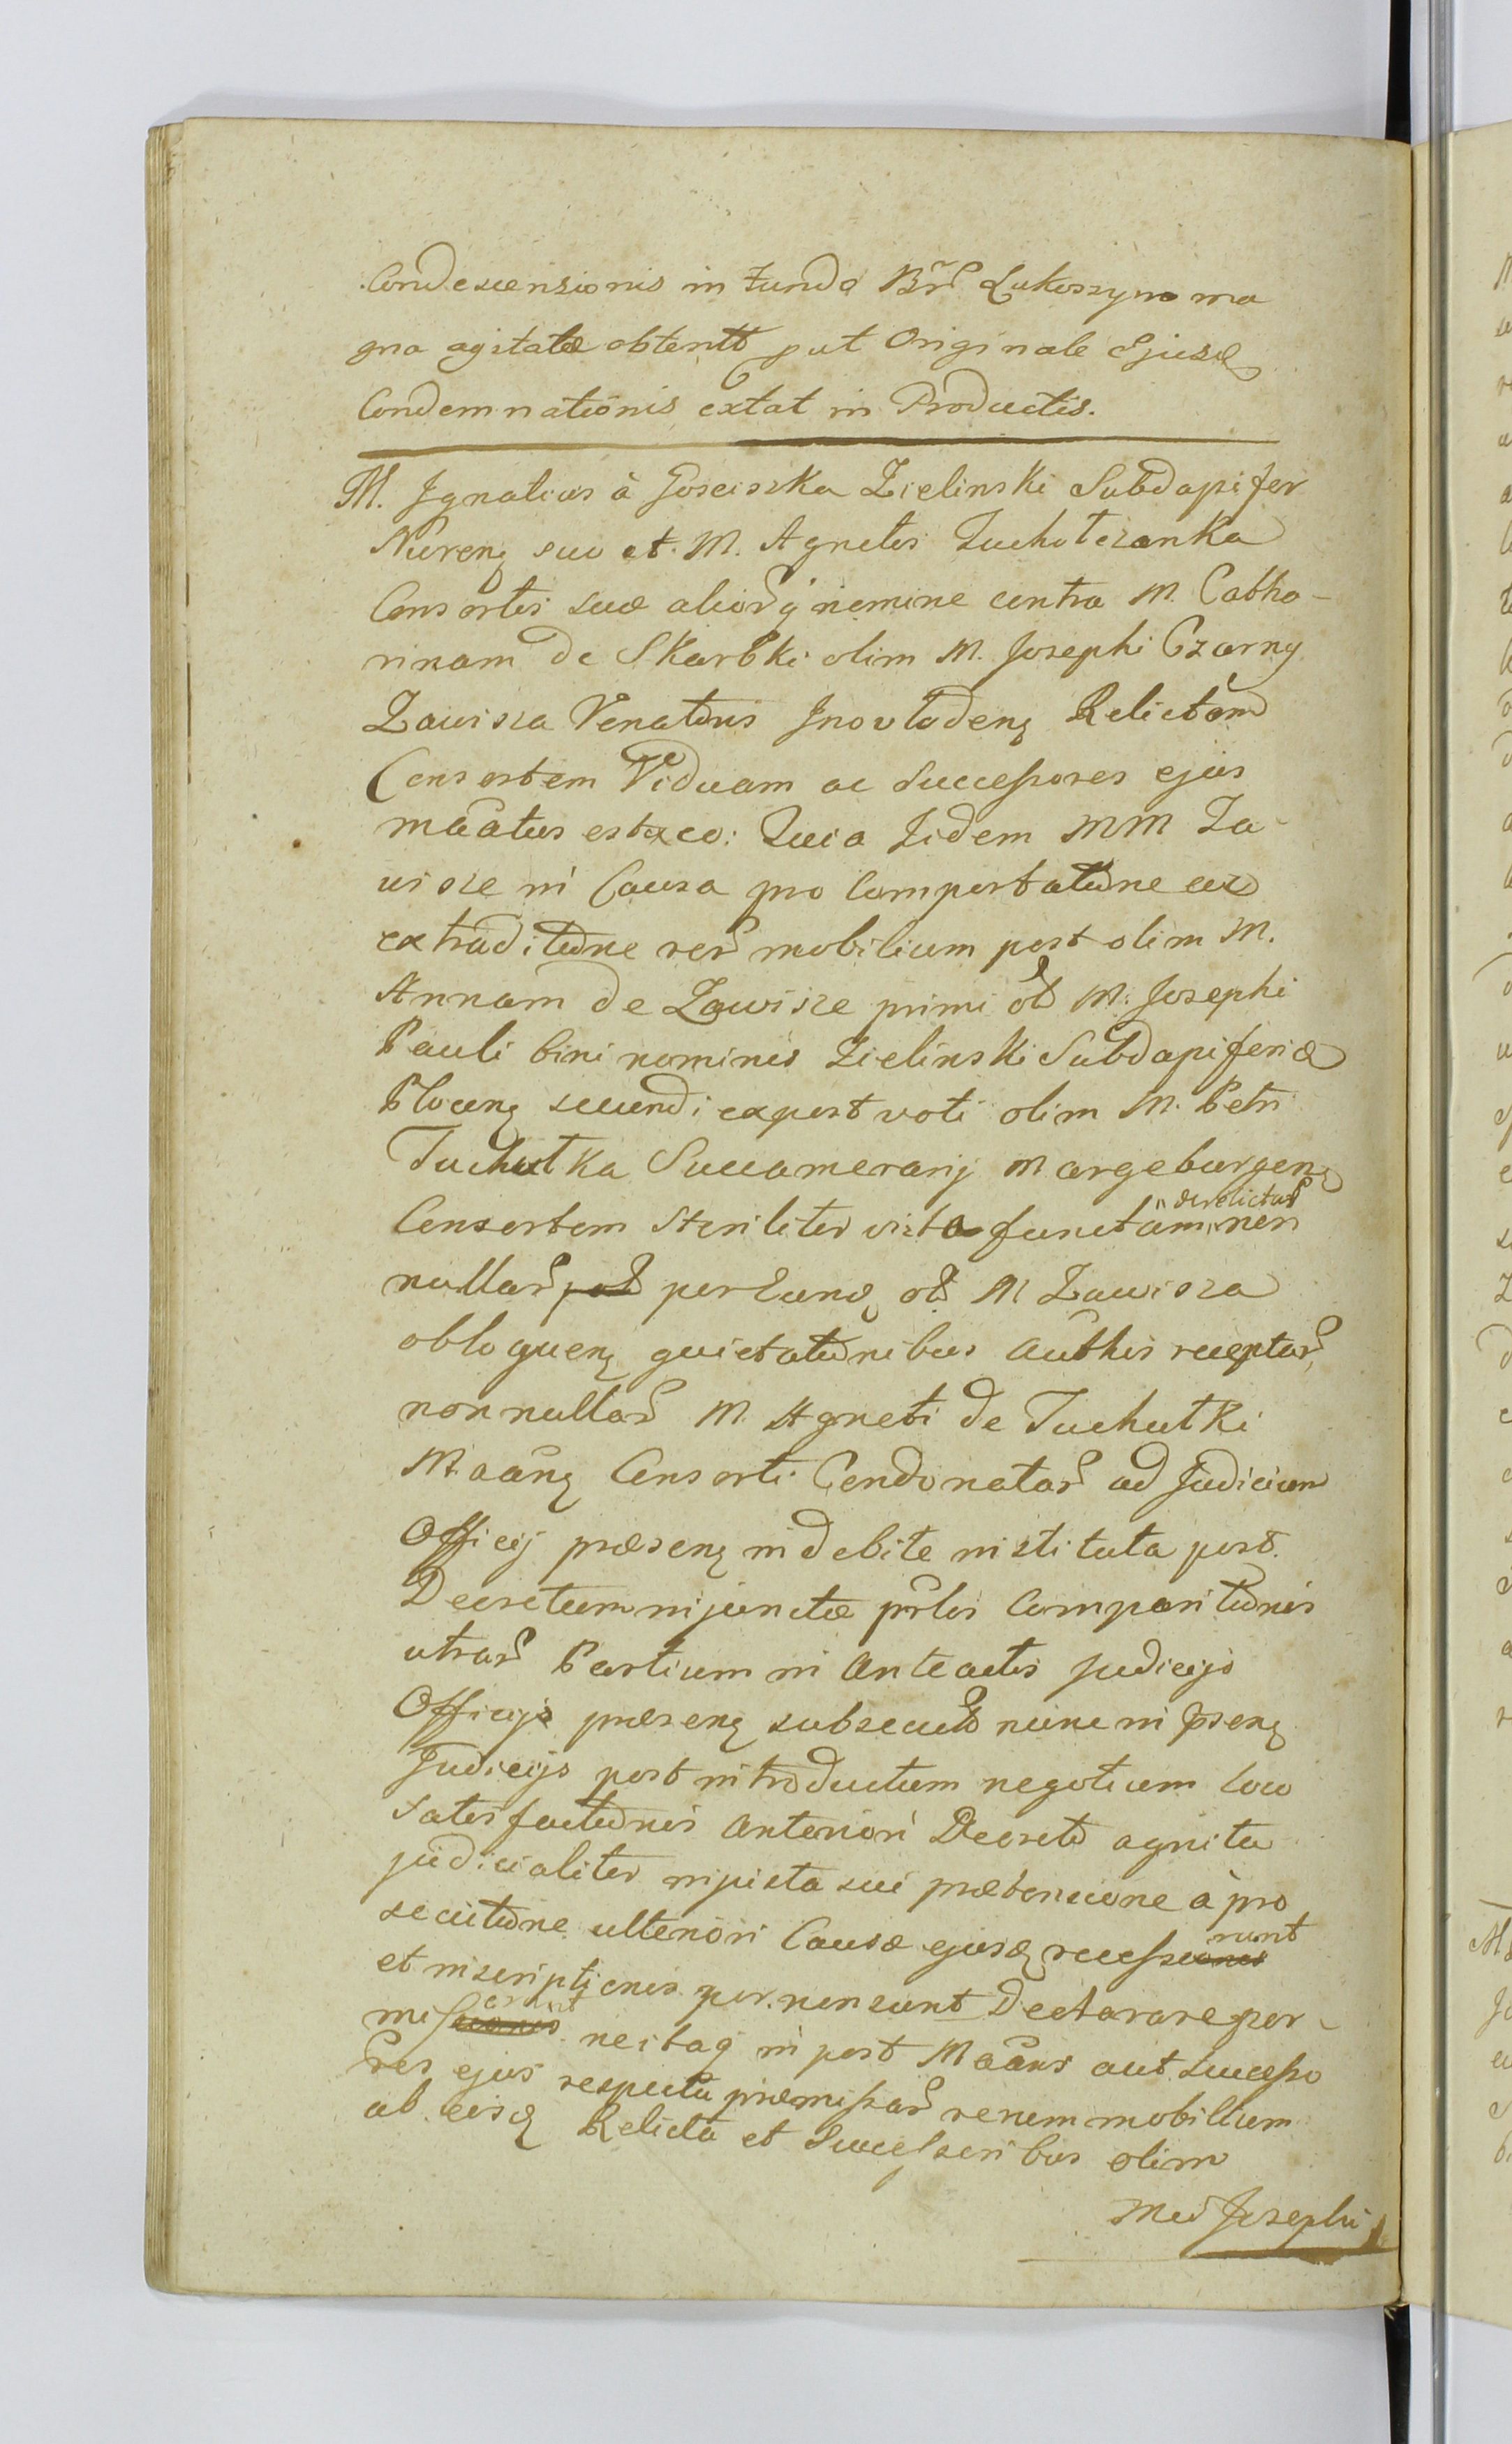 Condescensionis in Fundo Br̃ Lukoszyno ma
gno agitatæ obtent put Originale Ejusd
Condemnationis extat in Productis.
M. Ignatius à Gosciszka Zielinski Subdapifer
Nureng suo et M. Agnetis Tuchotczanka
Consortis suæ aliorq nomine contra M. Catha-
rinam de Skarbki olim M. Josephi Czarny
Zawisza Venatoris Jnovladeng Relictam
Consortem Viduam ac Successores ejus
mãatus est ex eo: Quia Iidem MM Za-
wisze in Causa pro Comportatione et
extraditione rer mobilium post olim M.
Annam de Zawisze primi ol M. Josephi
Pauli bini nominis Zielinski Subdapiferi
Ploceng secundi expost voti olim M. Petri
Tuchutka Succamerarij Margeburgeng
Consortem steriliter vita functam derelictar non
nullar per eund ol M Zawisza
obloqueng quietationibus Authis receptar
nonnullar M. Agneti de Tuchutki
Mãang Consorti Condonatar ad Judicium
Officij præseng indebite instituta post
Decretum injunctæ pñlis Comparitionis
utrar Partium in Anteactis Judicijs
Officijs præseng subsecut nunc in pseng
Judicijs post introductum negotium loco
satisfactionis Anteriori Decreto agnita
judicialiter injusta sui prætensione à pro
secutione ulteriori Causæ ejusd recesserunt
et inscriptiones per non sunt Declarare per-
miserunt ne itaq in post Mãans aut Successo
res ejus respectu præmissar rerum mobilium
ab eisd Relicta et Successoribus olim
Mci Josephi